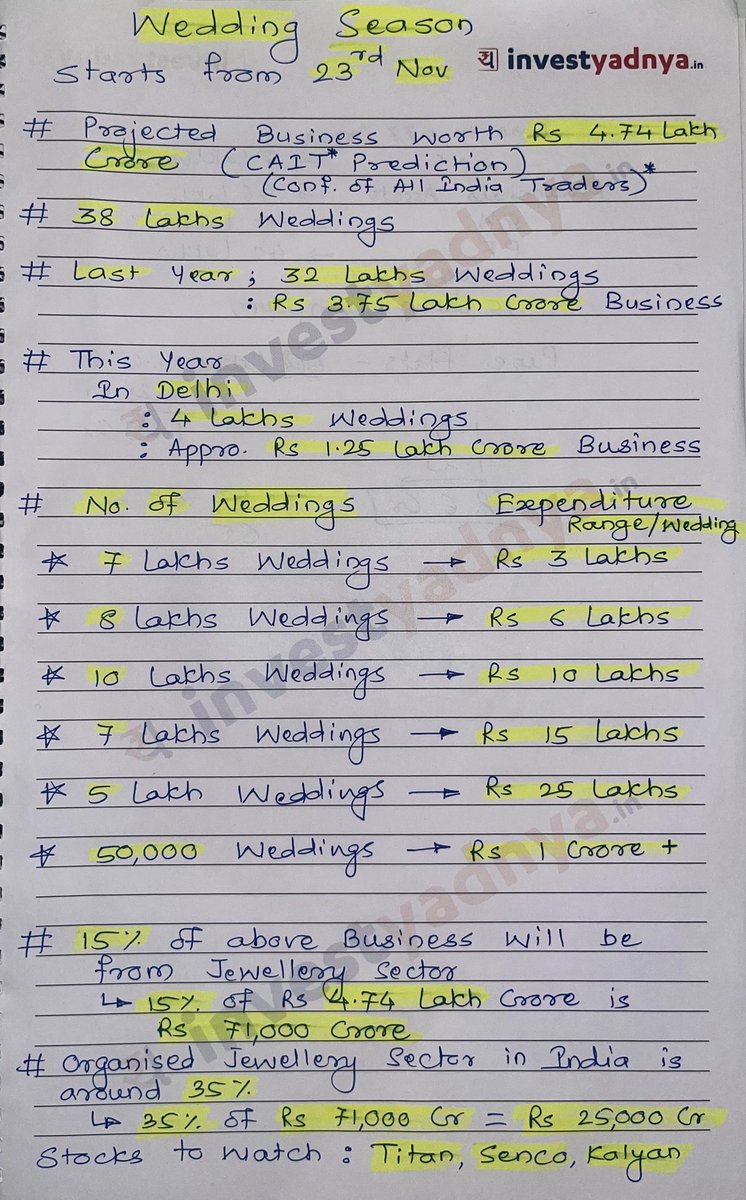 Wedding Season
Starts from 23rd Nov
investyadnya.in
# Projected Business worth Rs 4.74 Lakh
Crore (CAIT* Prediction)
(Conf. of All India Traders)*
# 38 Lakhs Weddings
# Last Year ; 32 Lakhs Weddings
: Rs 3.75 Lakh Crore Business
# This Year
In Delhi
: 4 Lakhs Weddings
: Appro. Rs 1.25 Lakh Crore Business
# No. of Weddings Expenditure
Range/Wedding
☆ 7 Lakhs Weddings → Rs 3 Lakhs
☆ 8 Lakhs Weddings → Rs 6 Lakhs
☆ 10 Lakhs Weddings → Rs 10 Lakhs
☆ 7 Lakhs Weddings → Rs 15 Lakhs
☆ 5 Lakh Weddings → Rs 25 Lakhs
☆ 50,000 Weddings → Rs 1 Crore +
# 15% of above Business will be
from Jewellery Sector
↳ 15% of Rs 4.74 Lakh Crore is
Rs 71,000 Crore
# Organised Jewellery Sector in India is
around 35%
↳ 35% of Rs 71,000 Cr = Rs 25,000 Cr
Stocks to Watch : Titan, Senco, Kalyan